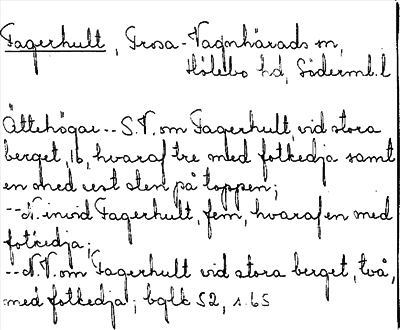 Fagerhult, Trosa-Vagnhärads sn,
Hölebo hd, Södermb.l
Ättehögar -- S.V. om Fagerhult, vid stora
berget, 16, hvaraf tre med fotkedja samt
en med rest sten på toppen;
-- N. invid Fagerhult, fem, hvaraf en med
fotkedja;
-- N.V. om Fagerhult vid stora berget, två,
med fotkedja; bglk 52, s. 65